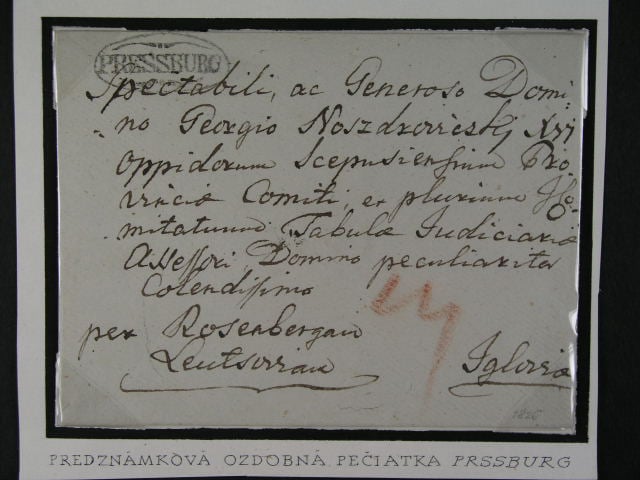 PRESSBURG
Spectabili, ac Generoso Domi-
no Georgio Noszdroviczkÿ XVI
oppidorum Scepusiensium Pro
vinciæ Comiti, et plurium
mitatuum Tabulæ Judiciariæ
Assessori Domino peculiariter
Colendissimo
per Rosenbergam
Leutsoviam
Iglovia
1826
PREDZNÁMKOVÁ OZDOBNÁ PEČIATKA PRSSBURG